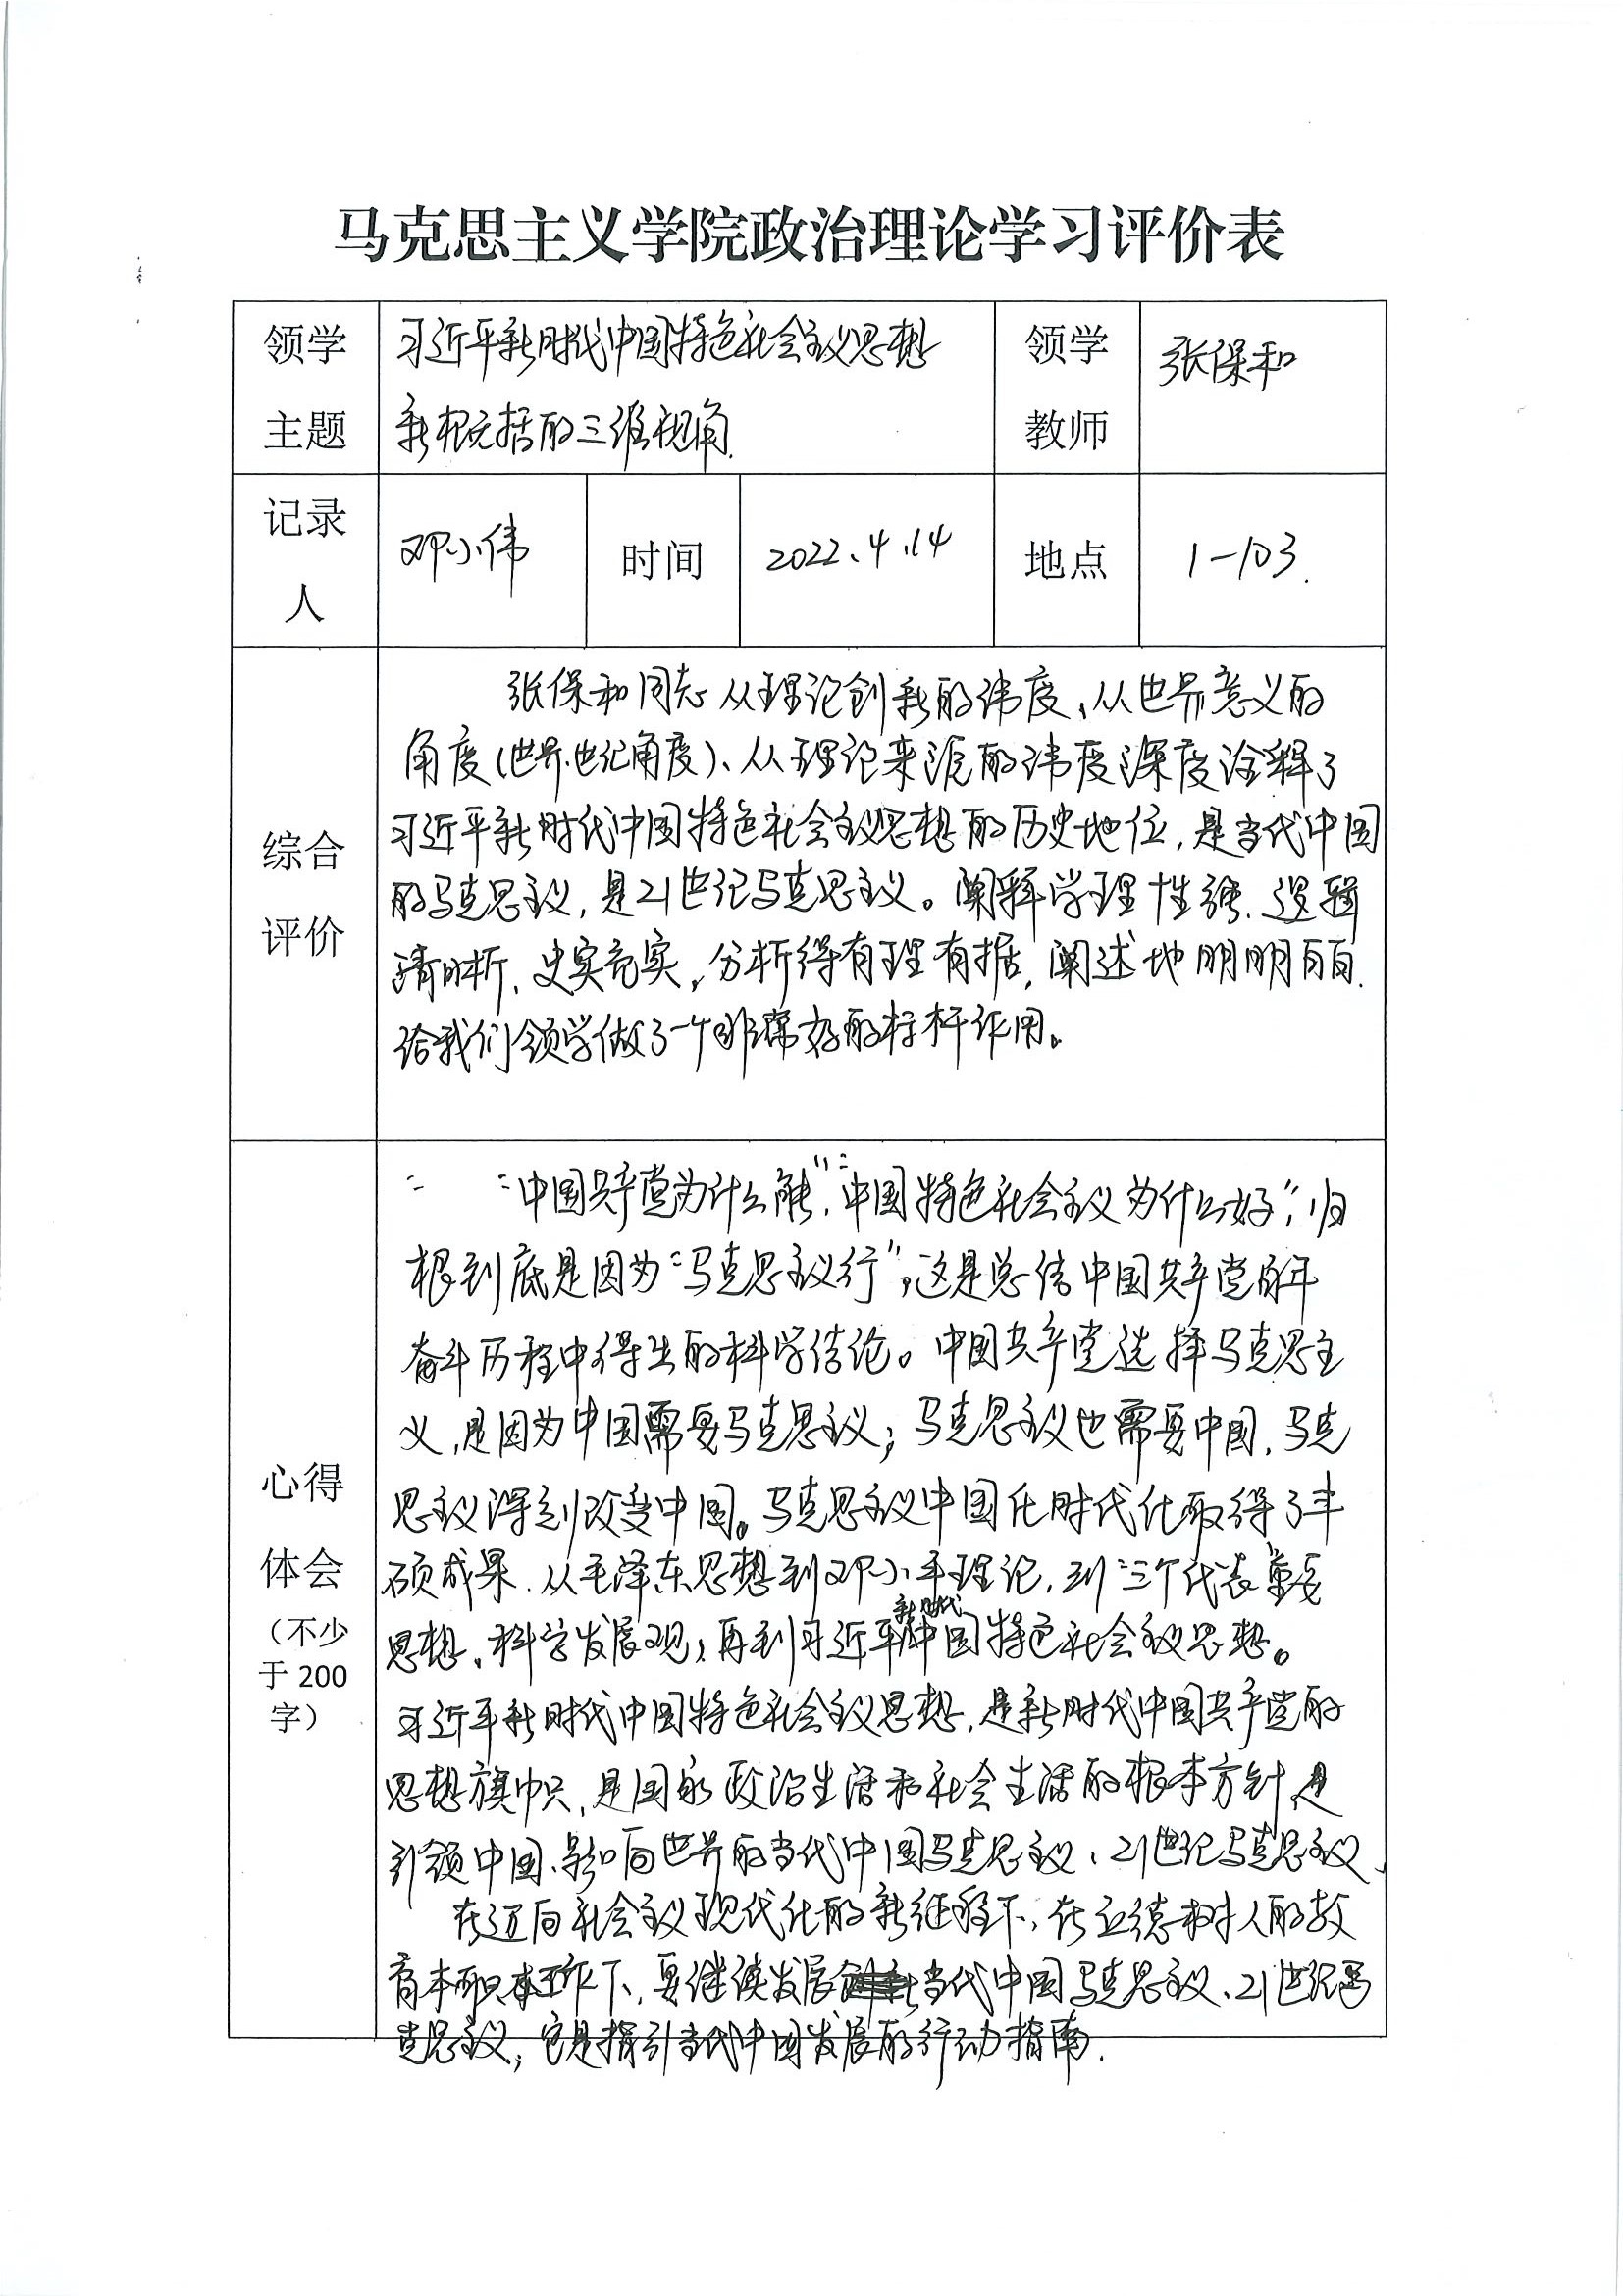 马克思主义学院政治理论学习评价表
领学主题
习近平新时代中国特色社会主义思想
新概括的三维视角.
领学教师
张保和
记录人
邓小伟
时间
2022、4、14
地点
1-103.
综合评价
张保和同志从理论创新的纬度、从世界意义的
角度(世界、世纪角度)、从理论来源的纬度深度诠释了
习近平新时代中国特色社会主义思想的历史地位,是当代中国
的马克思主义,是21世纪马克思主义。阐释学理性强、逻辑
清晰、史实充实。分析得有理有据,阐述地明明白白.
给我们领学做了一个非常好的标杆作用。
心得体会
(不少于200字)
“中国共产党为什么能”,“中国特色社会主义为什么好”,归
根到底是因为“马克思主义行”,这是总结中国共产党百年
奋斗历程中得出的科学结论。中国共产党选择马克思主
义,是因为中国需要马克思主义;马克思主义也需要中国,马克
思主义深刻改变中国。马克思主义中国化时代化取得了丰
硕成果.从毛泽东思想到邓小平理论,到“三个代表”重要
思想、科学发展观,再到习近平新时代中国特色社会主义思想。
习近平新时代中国特色社会主义思想,是新时代中国共产党的
思想旗帜,是国家政治生活和社会生活的根本方针,是
引领中国、影响世界的当代中国马克思主义、21世纪马克思主义、
在迈向社会主义现代化的新征程下,在立德树人的教
育本职工作下,要继续发展当代中国马克思主义、21世纪马
克思主义,它是指引当代中国发展的行动指南.